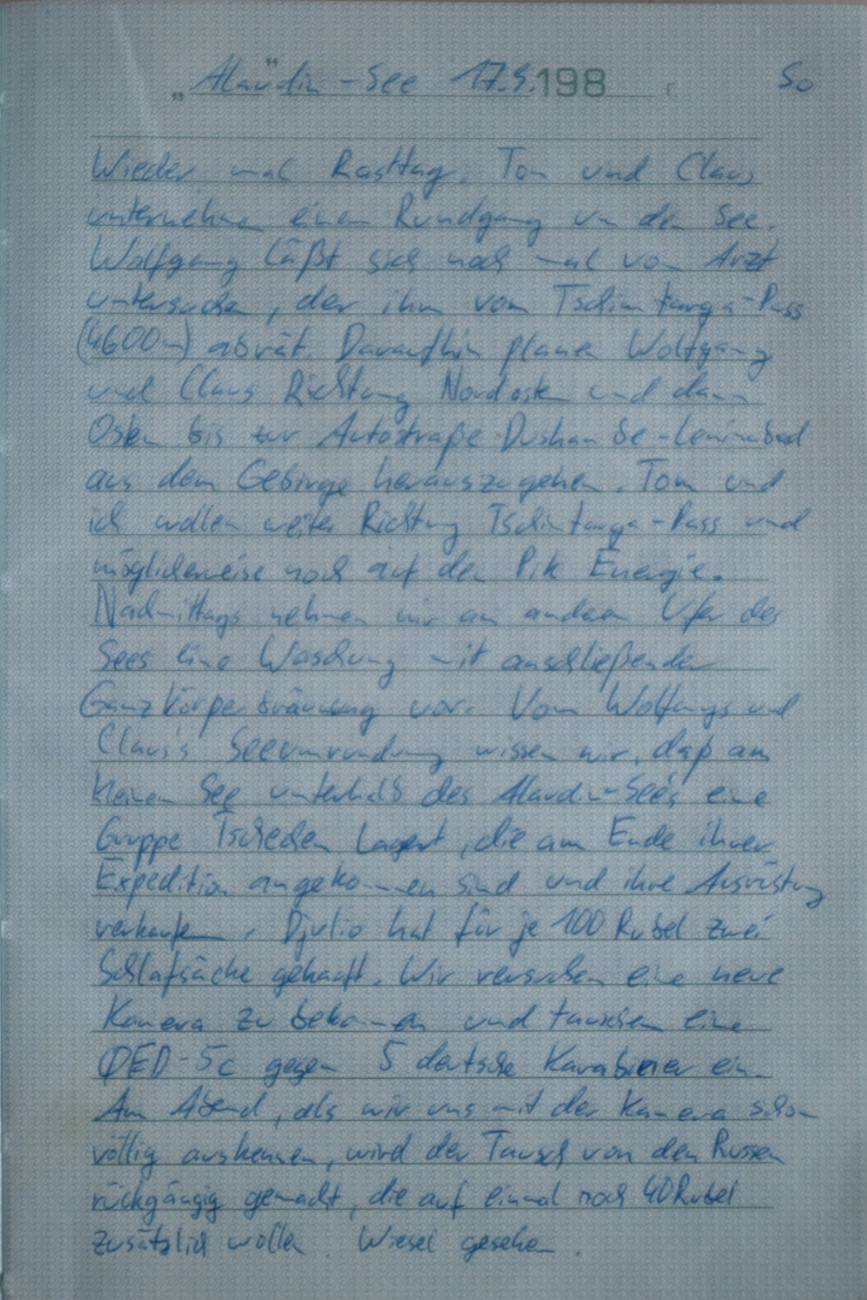 „Alaudin"-See 17.9.198 г. So
Wieder mal Rasttag. Tom und Claus
unternehmen einen Rundgang um den See.
Wolfgang läßt sich noch mal vom Arzt
untersuchen, der ihm vom Tschimtarga-Pass
(4600m) abrät. Daraufhin planen Wolfgang
und Claus Richtung Nordosten und dann
Osten bis zur Autostraße Dushanbe-Leninabad
aus dem Gebirge herauszugehen. Tom und
ich wollen weiter Richtung Tschimtarga-Pass und
möglicherweise noch auf den Pik Energie.
Nachmittags nehmen wir am anderen Ufer des
Sees eine Waschung mit anschließender
Ganzkörperbräunung vor. Von Wolfangs und
Claus's Seeumrundung wissen wir, daß am
kleinen See unterhalb des Alaudin-See's eine
Gruppe Tschechen lagert, die am Ende ihrer
Expedition angekommen sind und ihre Ausrüstung
verkaufen. Djulio hat für je 100 Rubel zwei
Schlafsäcke gekauft. Wir versuchen eine neue
Kamera zu bekommen und tauschen eine
ФЕD-5c gegen 5 deutsche Karabiner ein.
Am Abend, als wir uns mit der Kamera schon
völlig auskennen, wird der Tausch von den Russen
rückgängig gemacht, die auf einmal noch 40 Rubel
zusätzlich wollen. Wiesel gesehen.